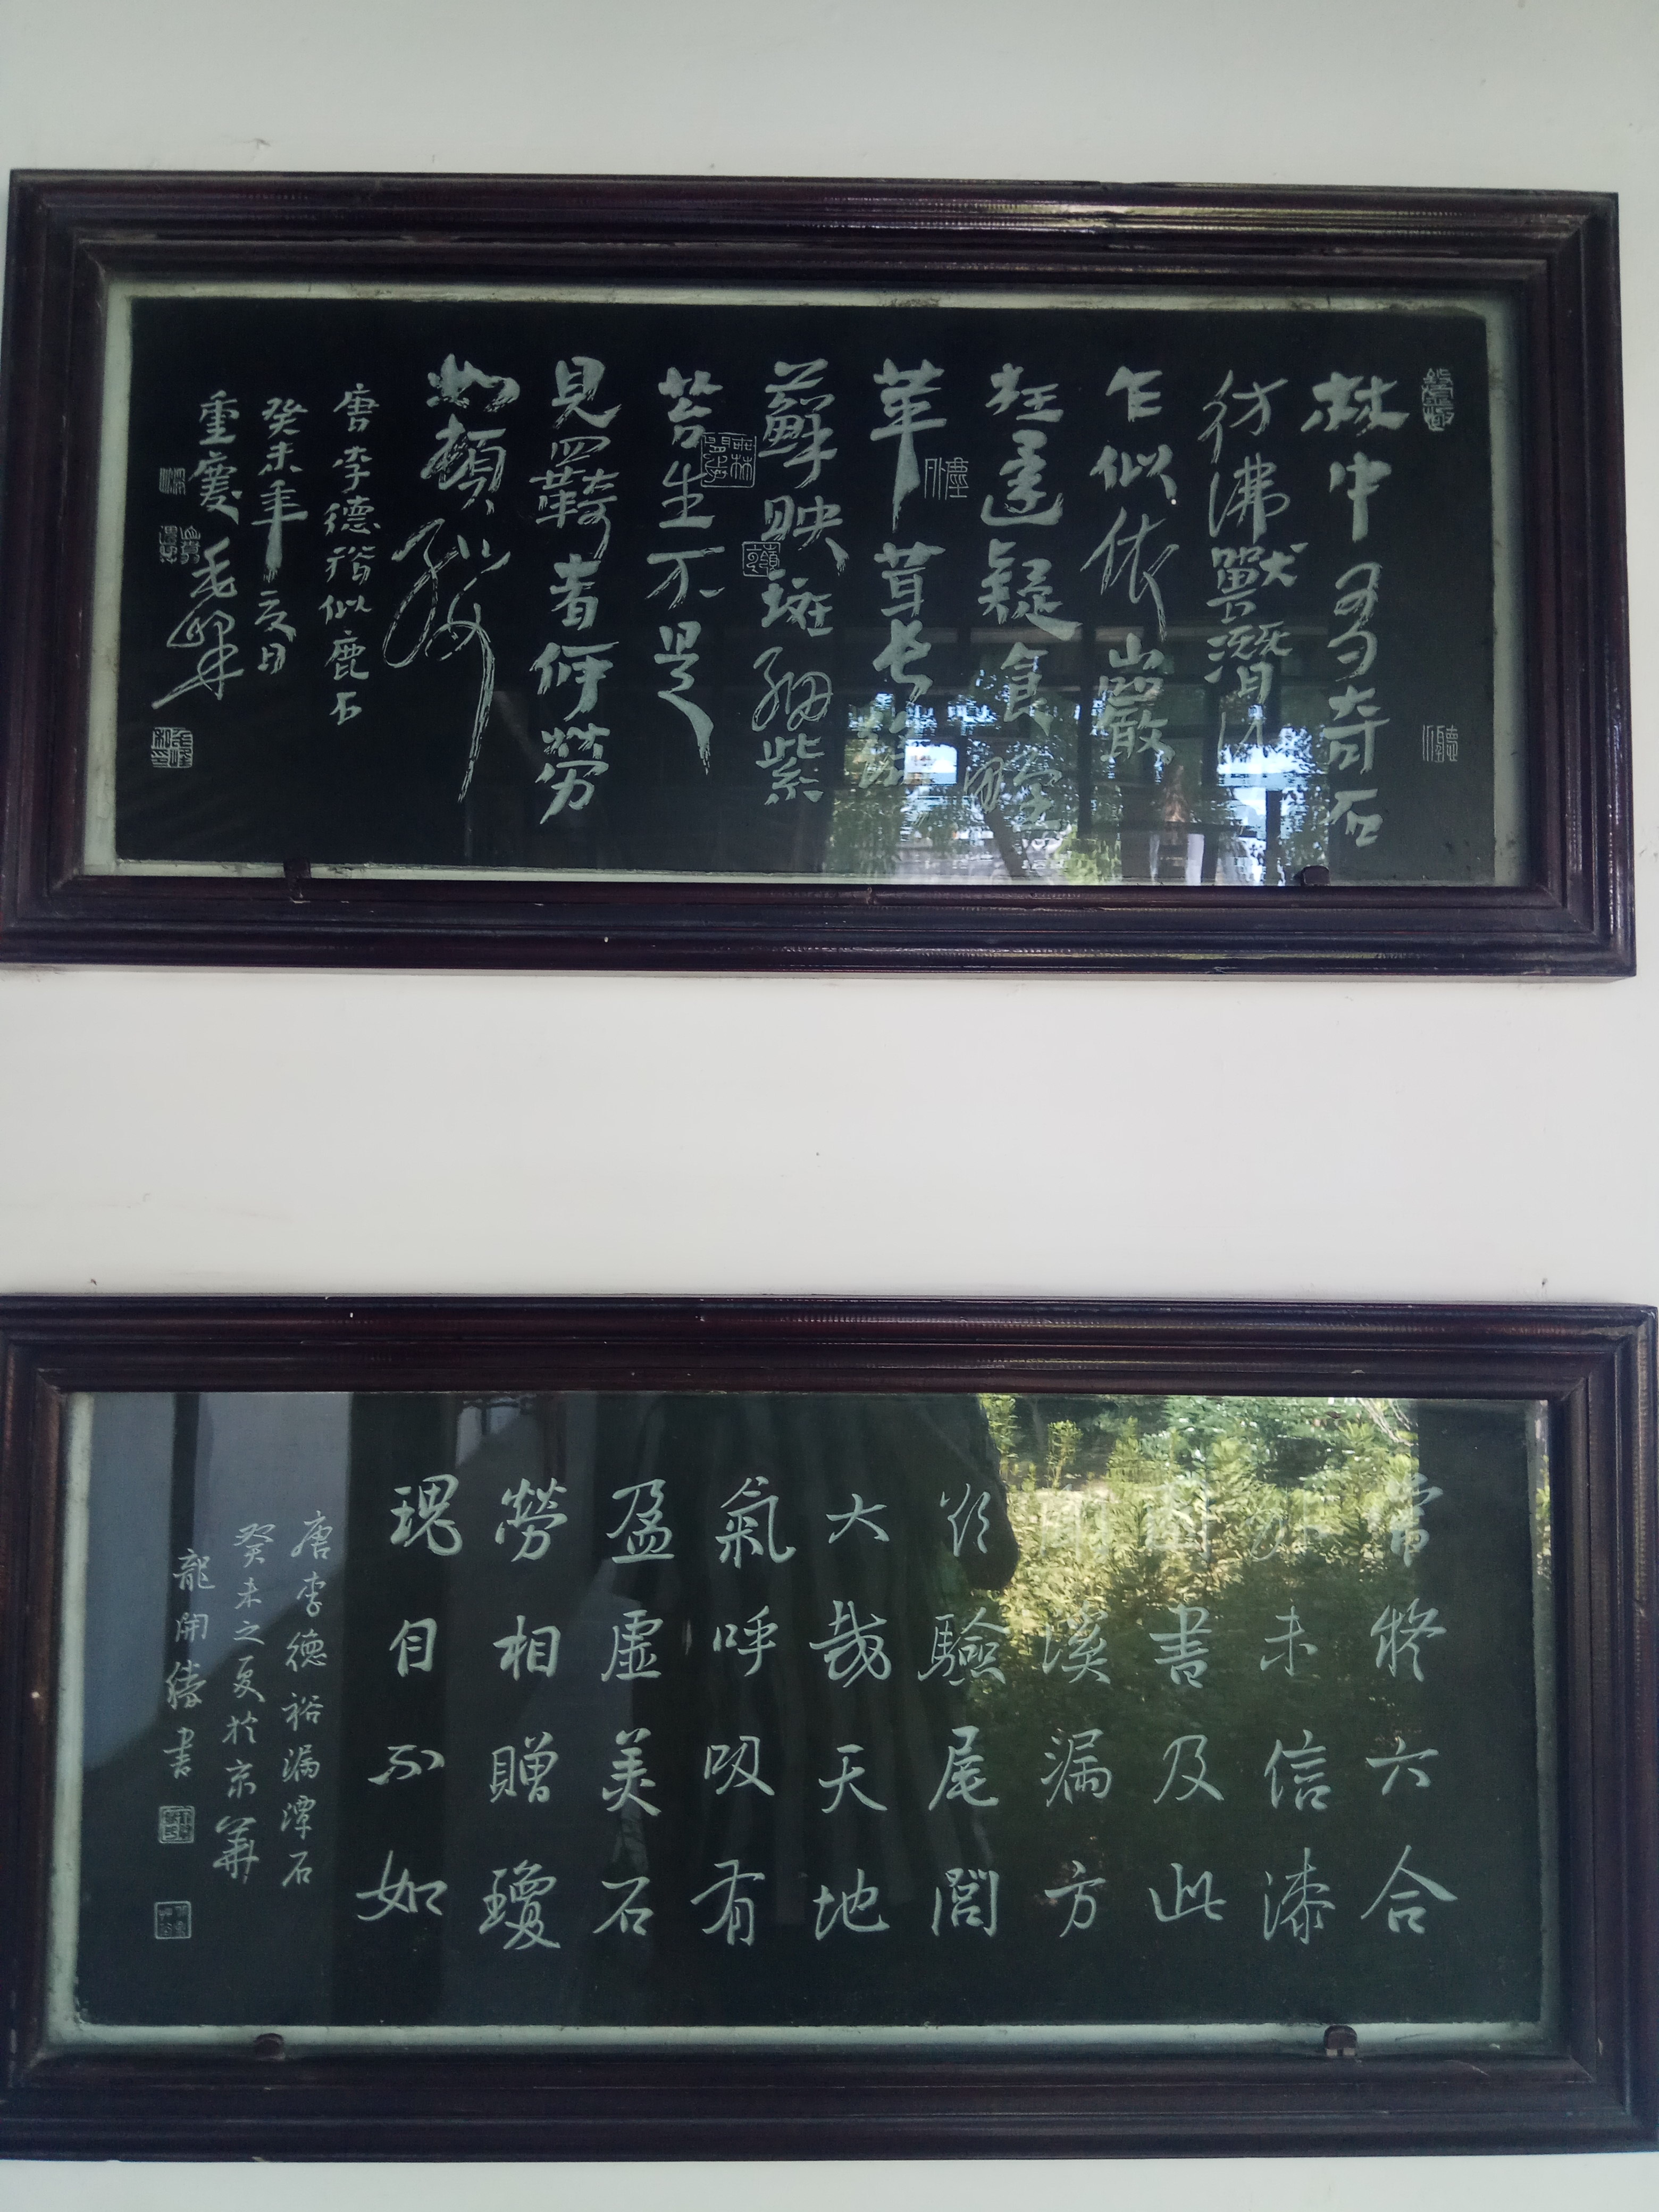 林中有奇石
彷彿獸潛行
乍似依巖
桂還疑食野
苹茸長綠
蘚映斑細紫
苔生不是
見羈者何勞
如頓纓
唐李德裕似鹿石
癸未年亥月
重慶毛峰
常疑六合
外未信漆
園書及此
聞溪漏方
欣驗尾閭
大哉天地
氣呼吸有
盈虛美石
勞相贈瓊
瑰自不如
唐李德裕漏潭石
癸未之夏於京華
龍開勝書